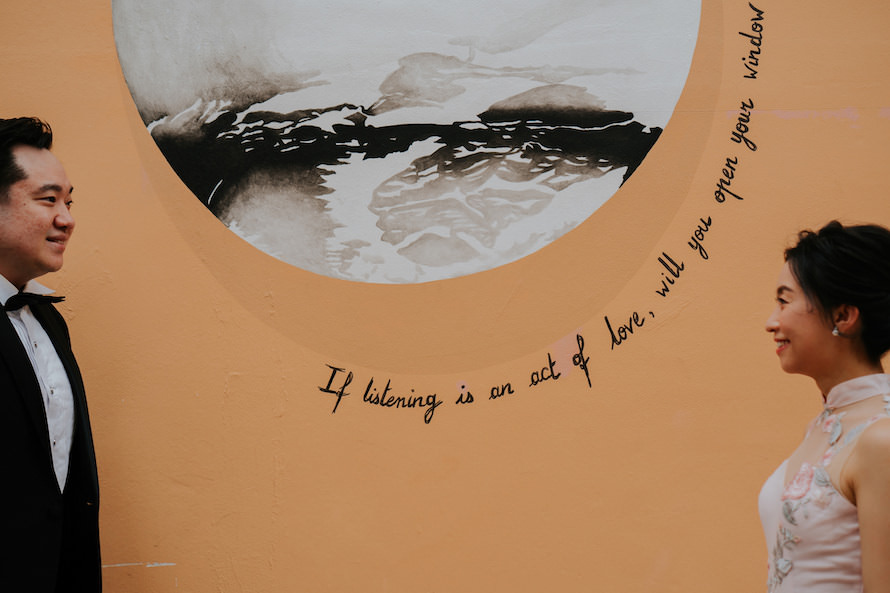 If listening is an act of love, will you open your window